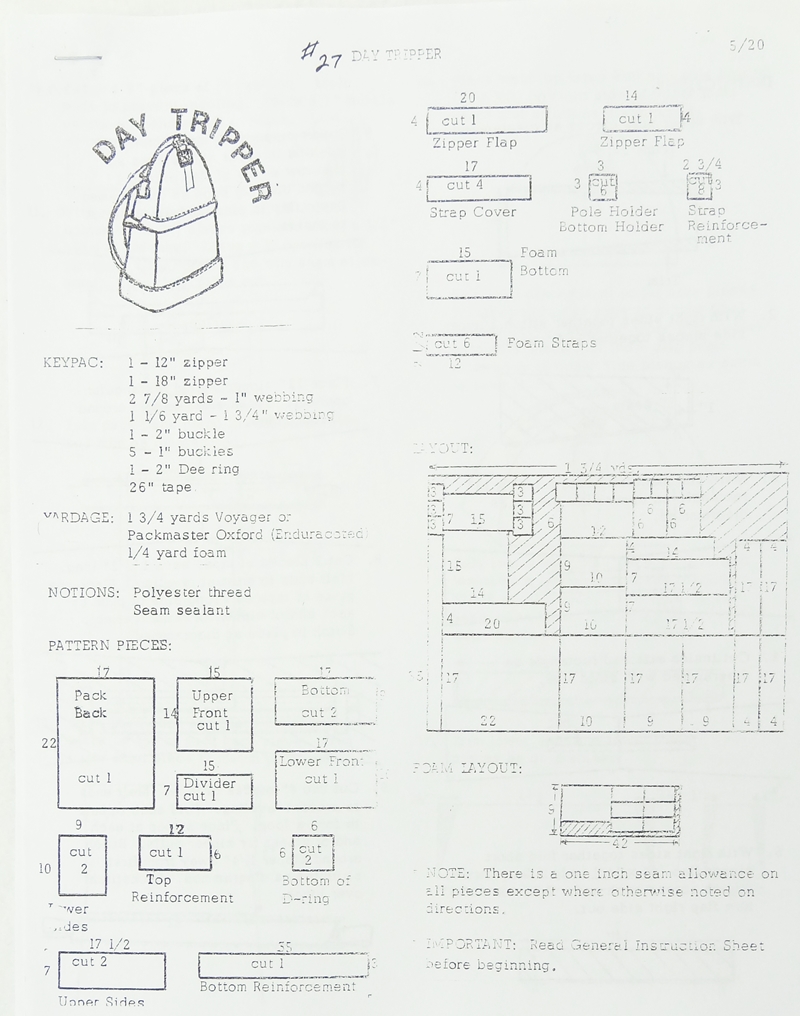 #27 DAY TRIPPER
5/20
DAY TRIPPER
KEYPAC: 1 - 12" zipper
1 - 18" zipper
2 7/8 yards - 1" webbing
1 1/6 yard - 1 3/4" webbing
1 - 2" buckle
5 - 1" buckles
1 - 2" Dee ring
26" tape
YARDAGE: 1 3/4 yards Voyager or
Packmaster Oxford (Enduracoated)
1/4 yard foam
NOTIONS: Polyester thread
Seam sealant
PATTERN PIECES:
17
Pack
Back
22
cut 1
15
Upper
Front
14
cut 1
17
Bottom
cut 2
15
Divider
7
cut 1
17
Lower Front
cut 1
9
cut
2
10
12
cut 1
6
Top
Reinforcement
6
6
cut
2
Bottom of
D-ring
17 1/2
7
cut 2
Upper Sides
cut 1
Bottom Reinforcement
20
4
cut 1
Zipper Flap
14
cut 1
4
Zipper Flap
17
4
cut 4
Strap Cover
3
3
cut
6
Pole Holder
Bottom Holder
2 3/4
cut
3
Strap
Reinforce-
ment
15
Foam
cut 1
Bottom
cut 6
Foam Straps
12
LAYOUT:
1 3/4 yds.
3
3
3
3
7
15
3
3
6
12
6
6
6
6
15
14
9
10
14
7
17 1/2
4
4
17
17
4
20
9
10
7
17 1/2
17
17
17
17
17
17
22
10
9
9
4
4
FOAM LAYOUT:
9
42
NOTE: There is a one inch seam allowance on
all pieces except where otherwise noted on
directions.
IMPORTANT: Read General Instruction Sheet
before beginning.